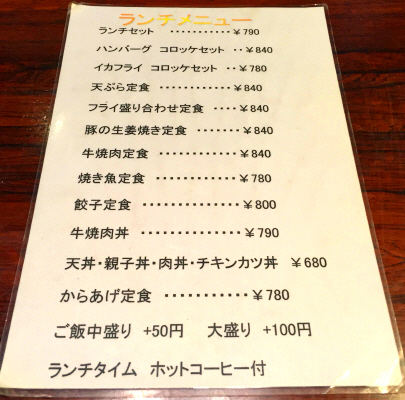 ランチメニュー
ランチセット ・・・・・・・・・・・￥790
ハンバーグ コロッケセット ・・￥840
イカフライ コロッケセット ・・￥780
天ぷら定食 ・・・・・・・・・・・・￥840
フライ盛り合わせ定食 ・・・・￥840
豚の生姜焼き定食 ・・・・・・・￥840
牛焼肉定食 ・・・・・・・・・・・・￥840
焼き魚定食 ・・・・・・・・・・・・￥780
餃子定食 ・・・・・・・・・・・・・￥800
牛焼肉丼 ・・・・・・・・・・・・・・￥790
天丼・親子丼・肉丼・チキンカツ丼 ￥680
からあげ定食 ・・・・・・・・・・・￥780
ご飯中盛り +50円 大盛り +100円
ランチタイム ホットコーヒー付